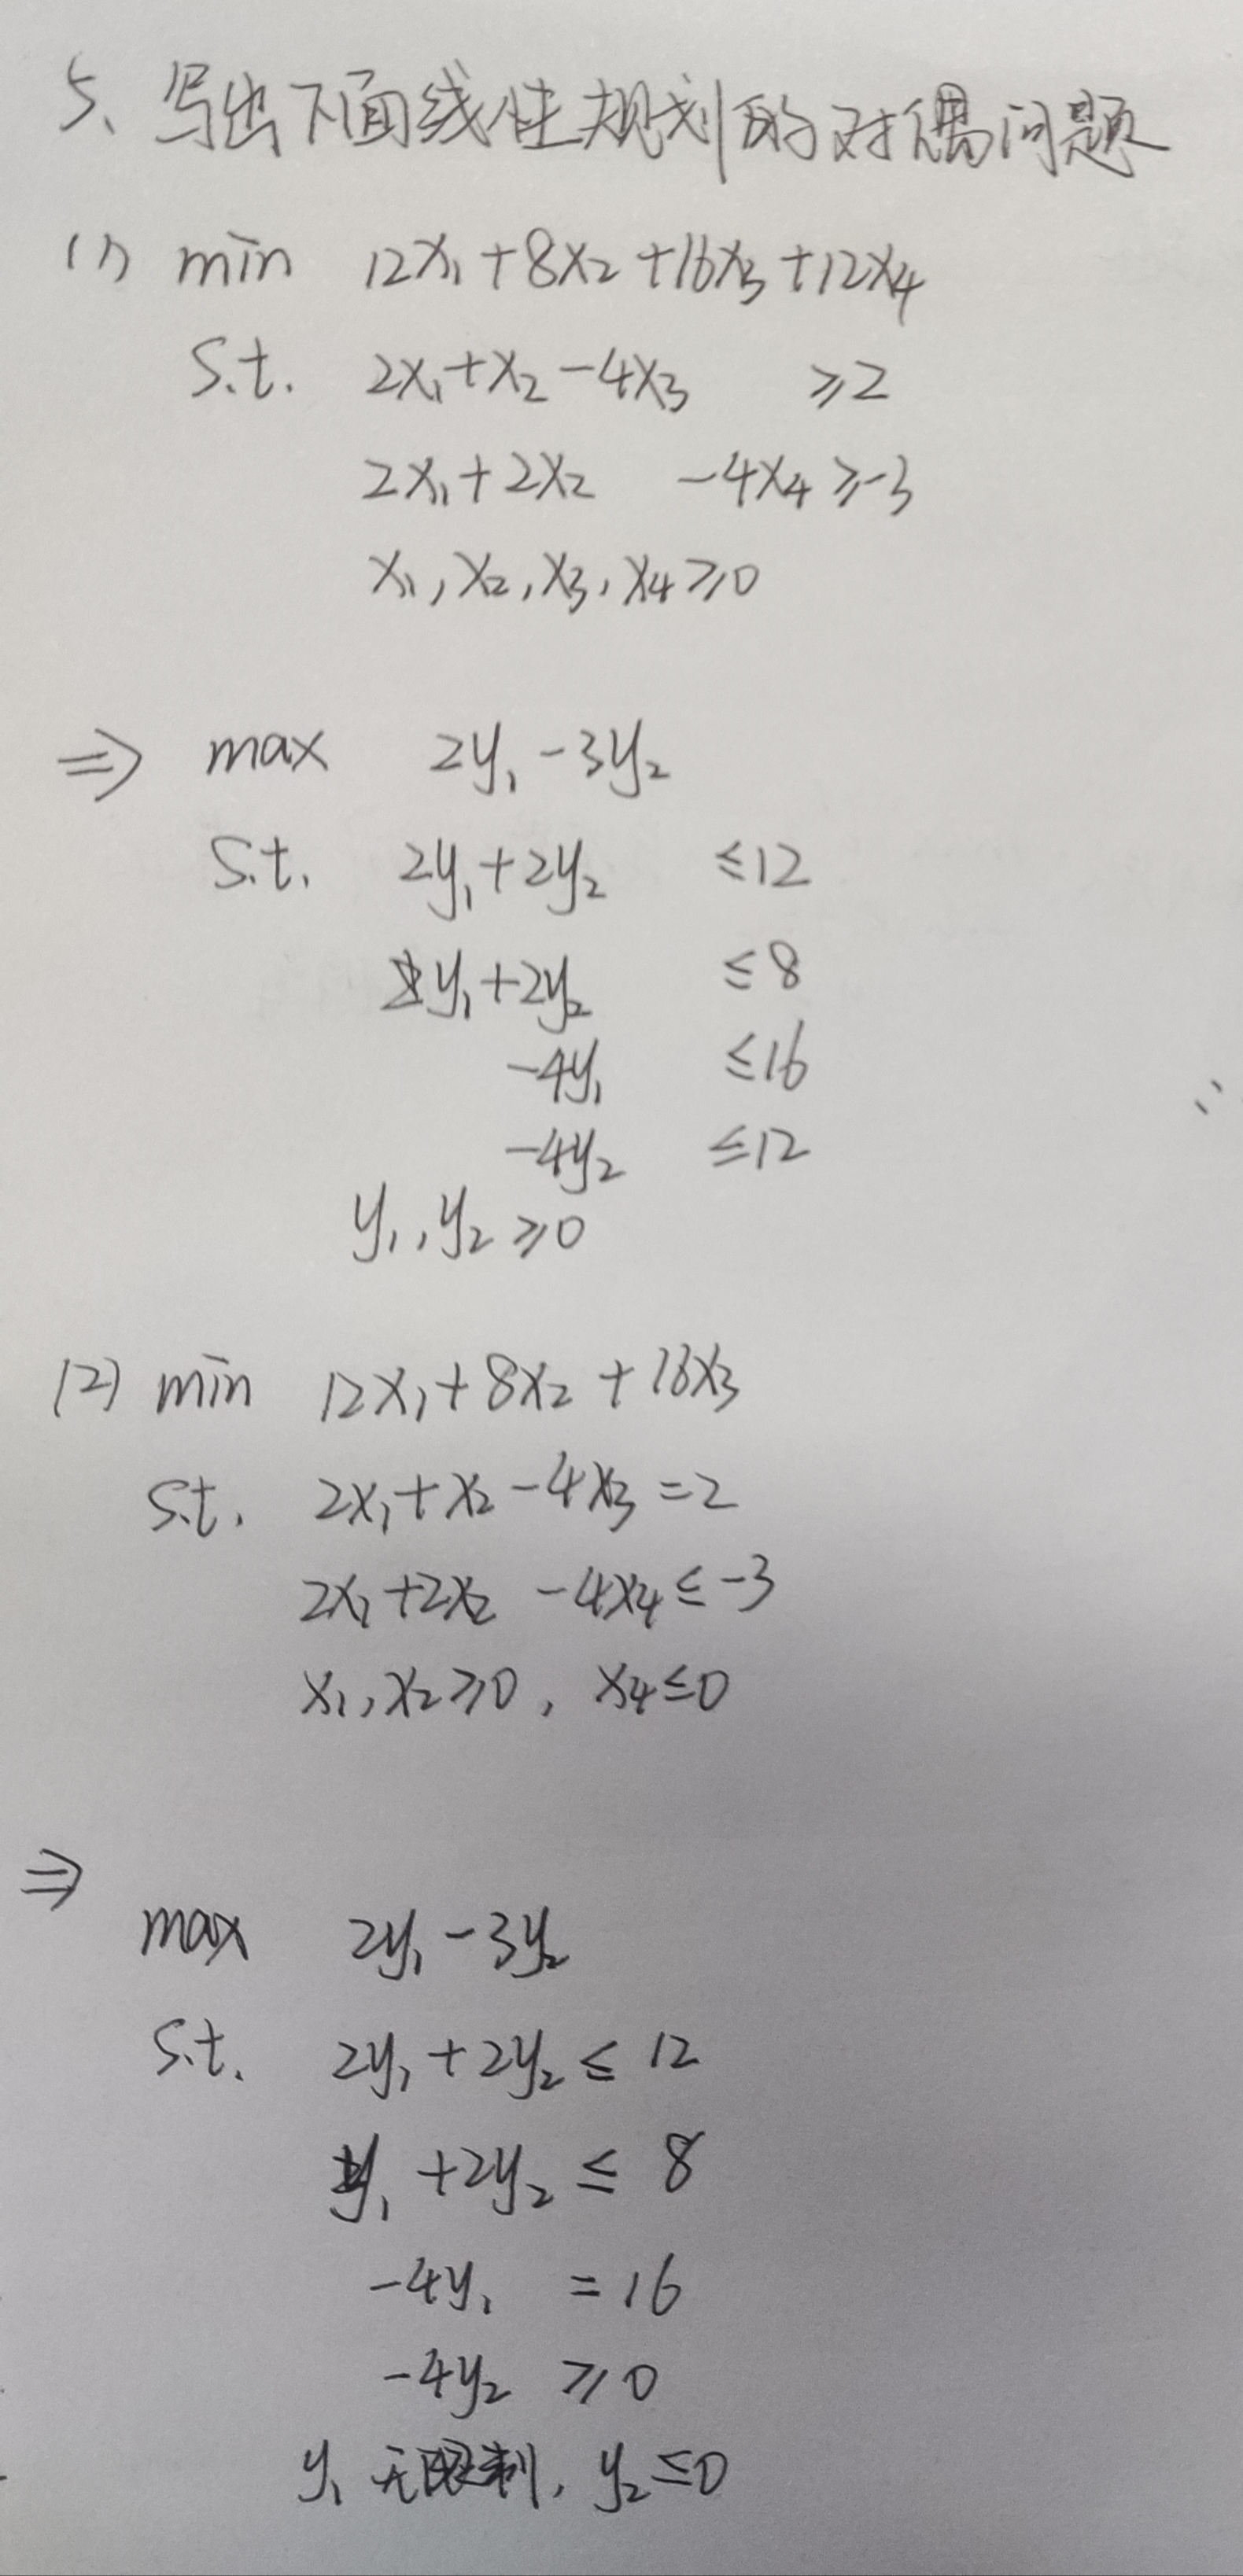 5、写出下面线性规划的对偶问题
(1) min 12x₁+8x₂+16x₃+12x₄
s.t. 2x₁+x₂-4x₃ ≥2
2x₁+2x₂ -4x₄≥-3
x₁,x₂,x₃,x₄≥0
⇒ max 2y₁-3y₂
s.t. 2y₁+2y₂ ≤12
y₁+2y₂ ≤8
-4y₁ ≤16
-4y₂ ≤12
y₁,y₂≥0
(2) min 12x₁+8x₂+16x₃
s.t. 2x₁+x₂-4x₃=2
2x₁+2x₂ -4x₄≤-3
x₁,x₂≥0, x₄≤0
⇒
max 2y₁-3y₂
s.t. 2y₁+2y₂≤12
y₁+2y₂≤8
-4y₁ =16
-4y₂ ≥0
y₁无限制, y₂≤0